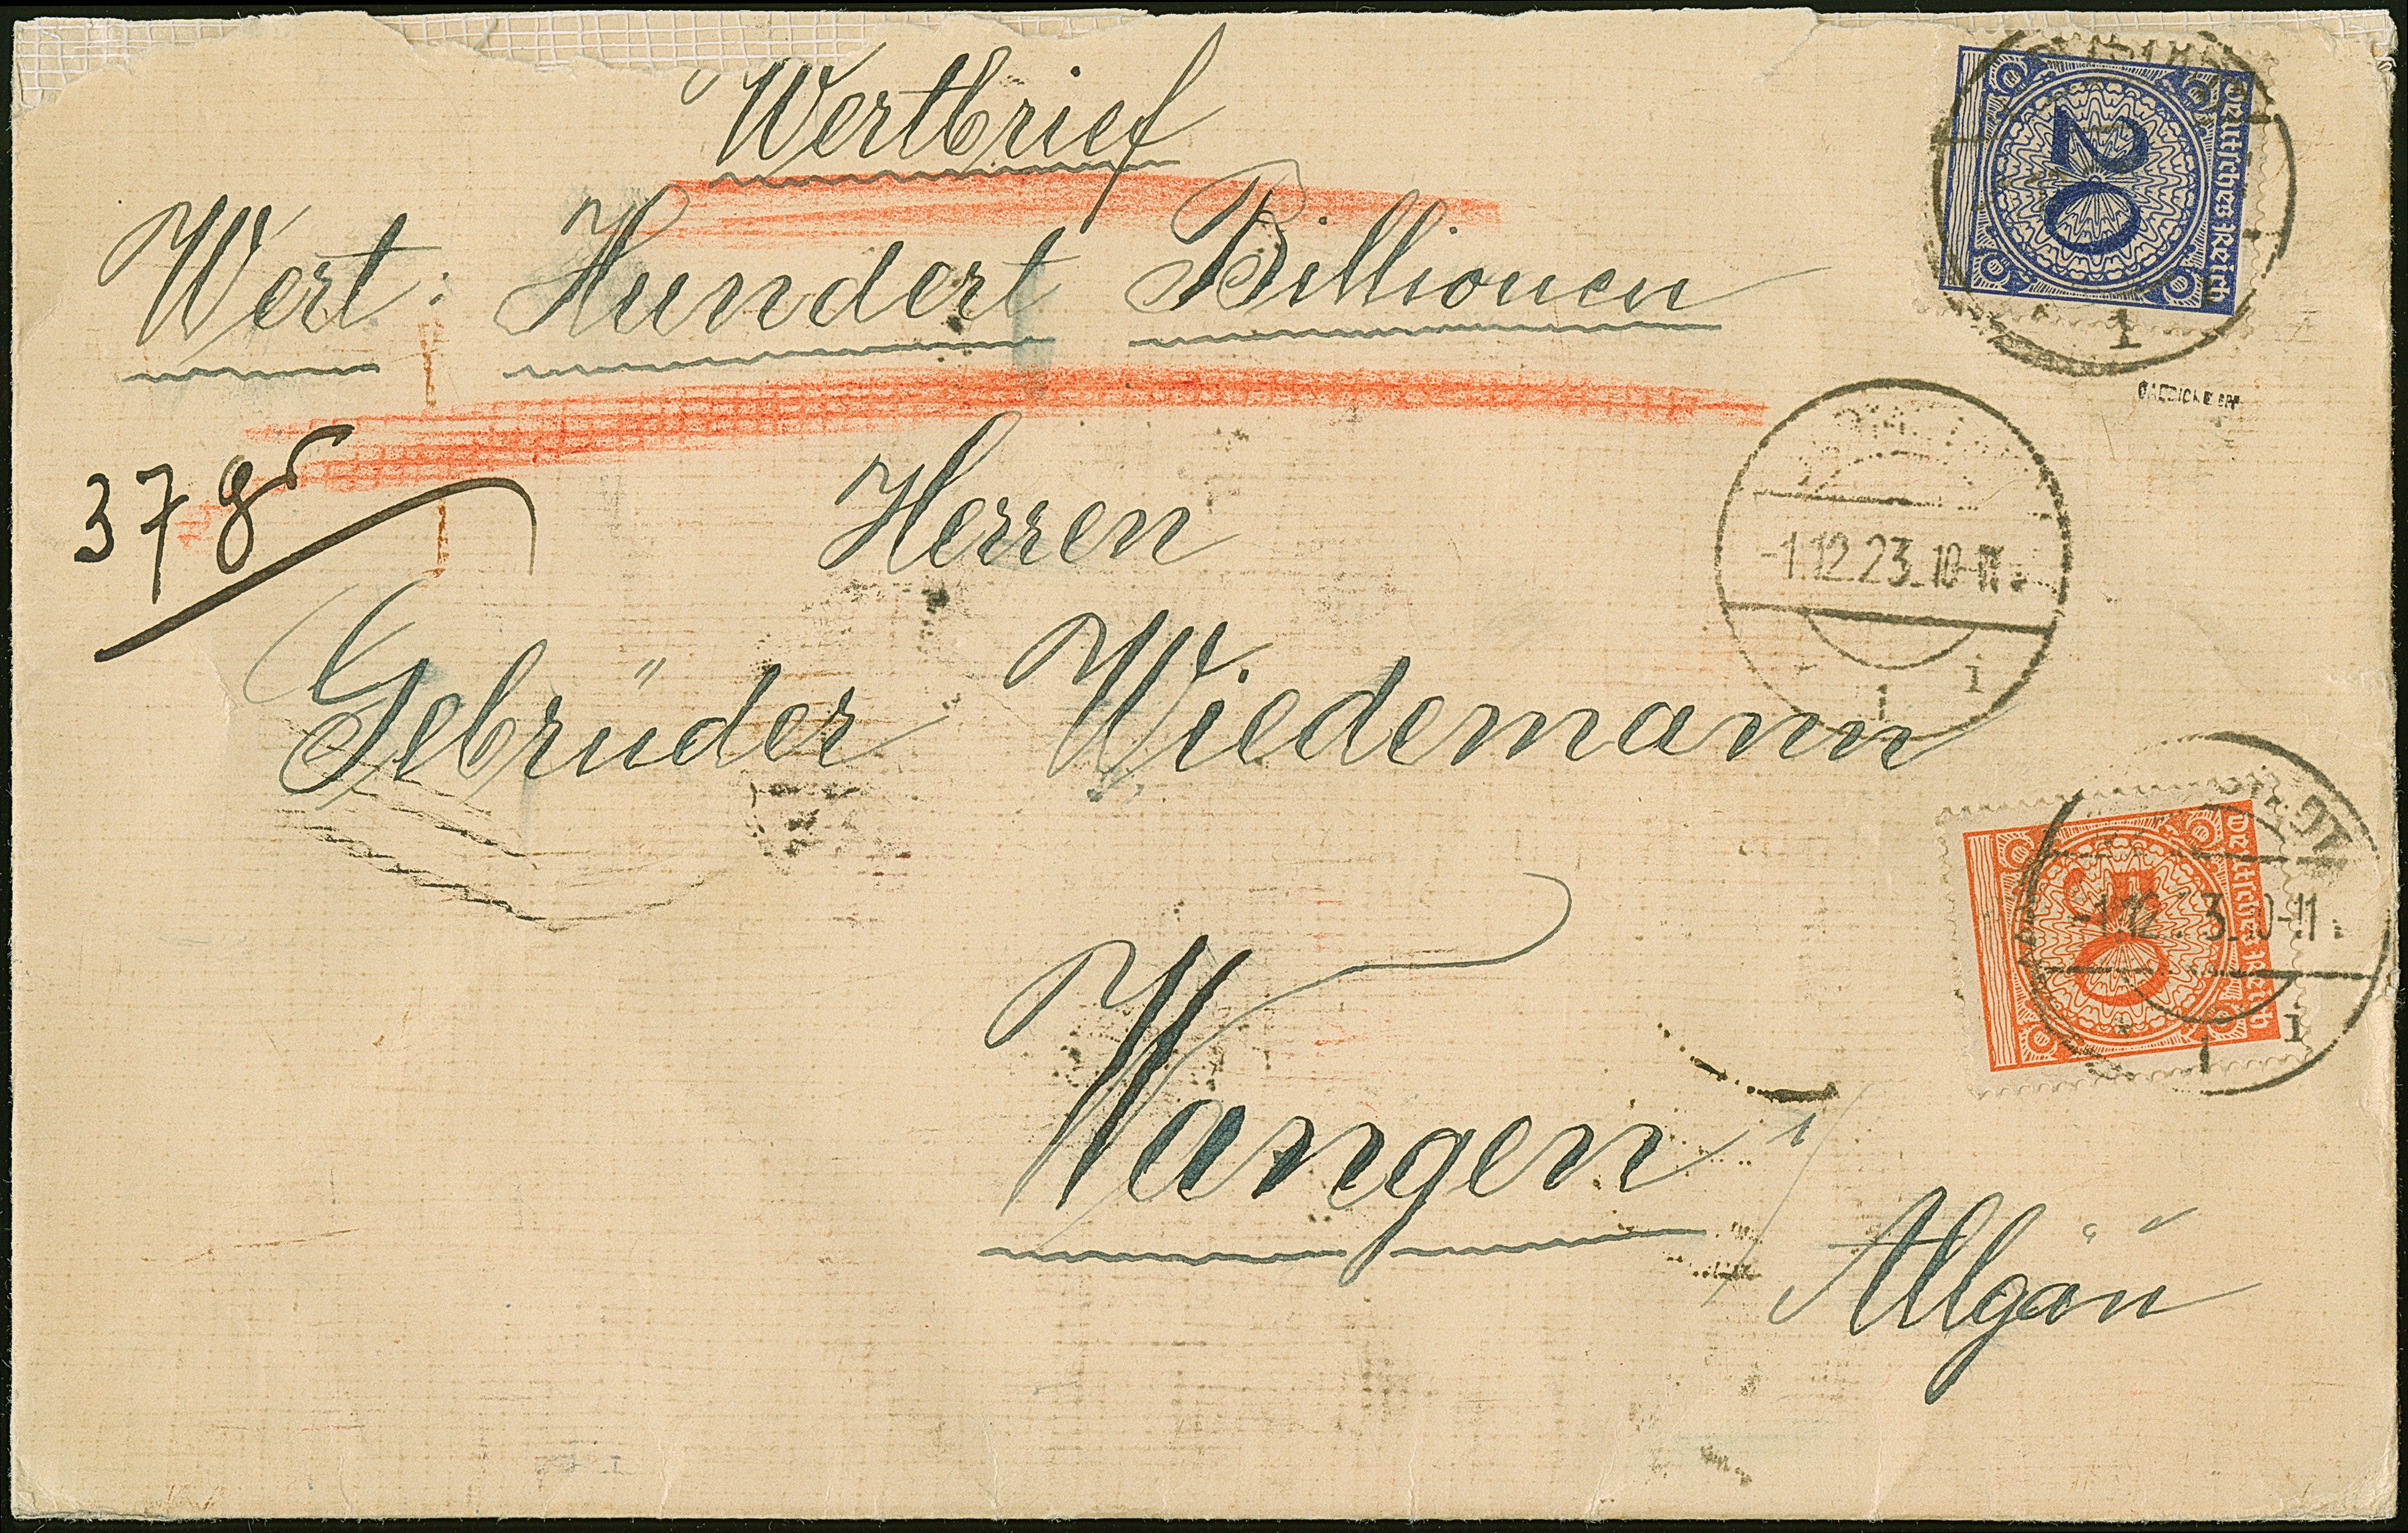 Wertbrief
Wert: Hundert Billionen
37 gr
Herren
Gebrüder Wiedemann
Wangen
i/ Allgäu
20
Deutsches Reich
-1.12.23. 10-11
1
50
Deutsches Reich
10-11
1
1